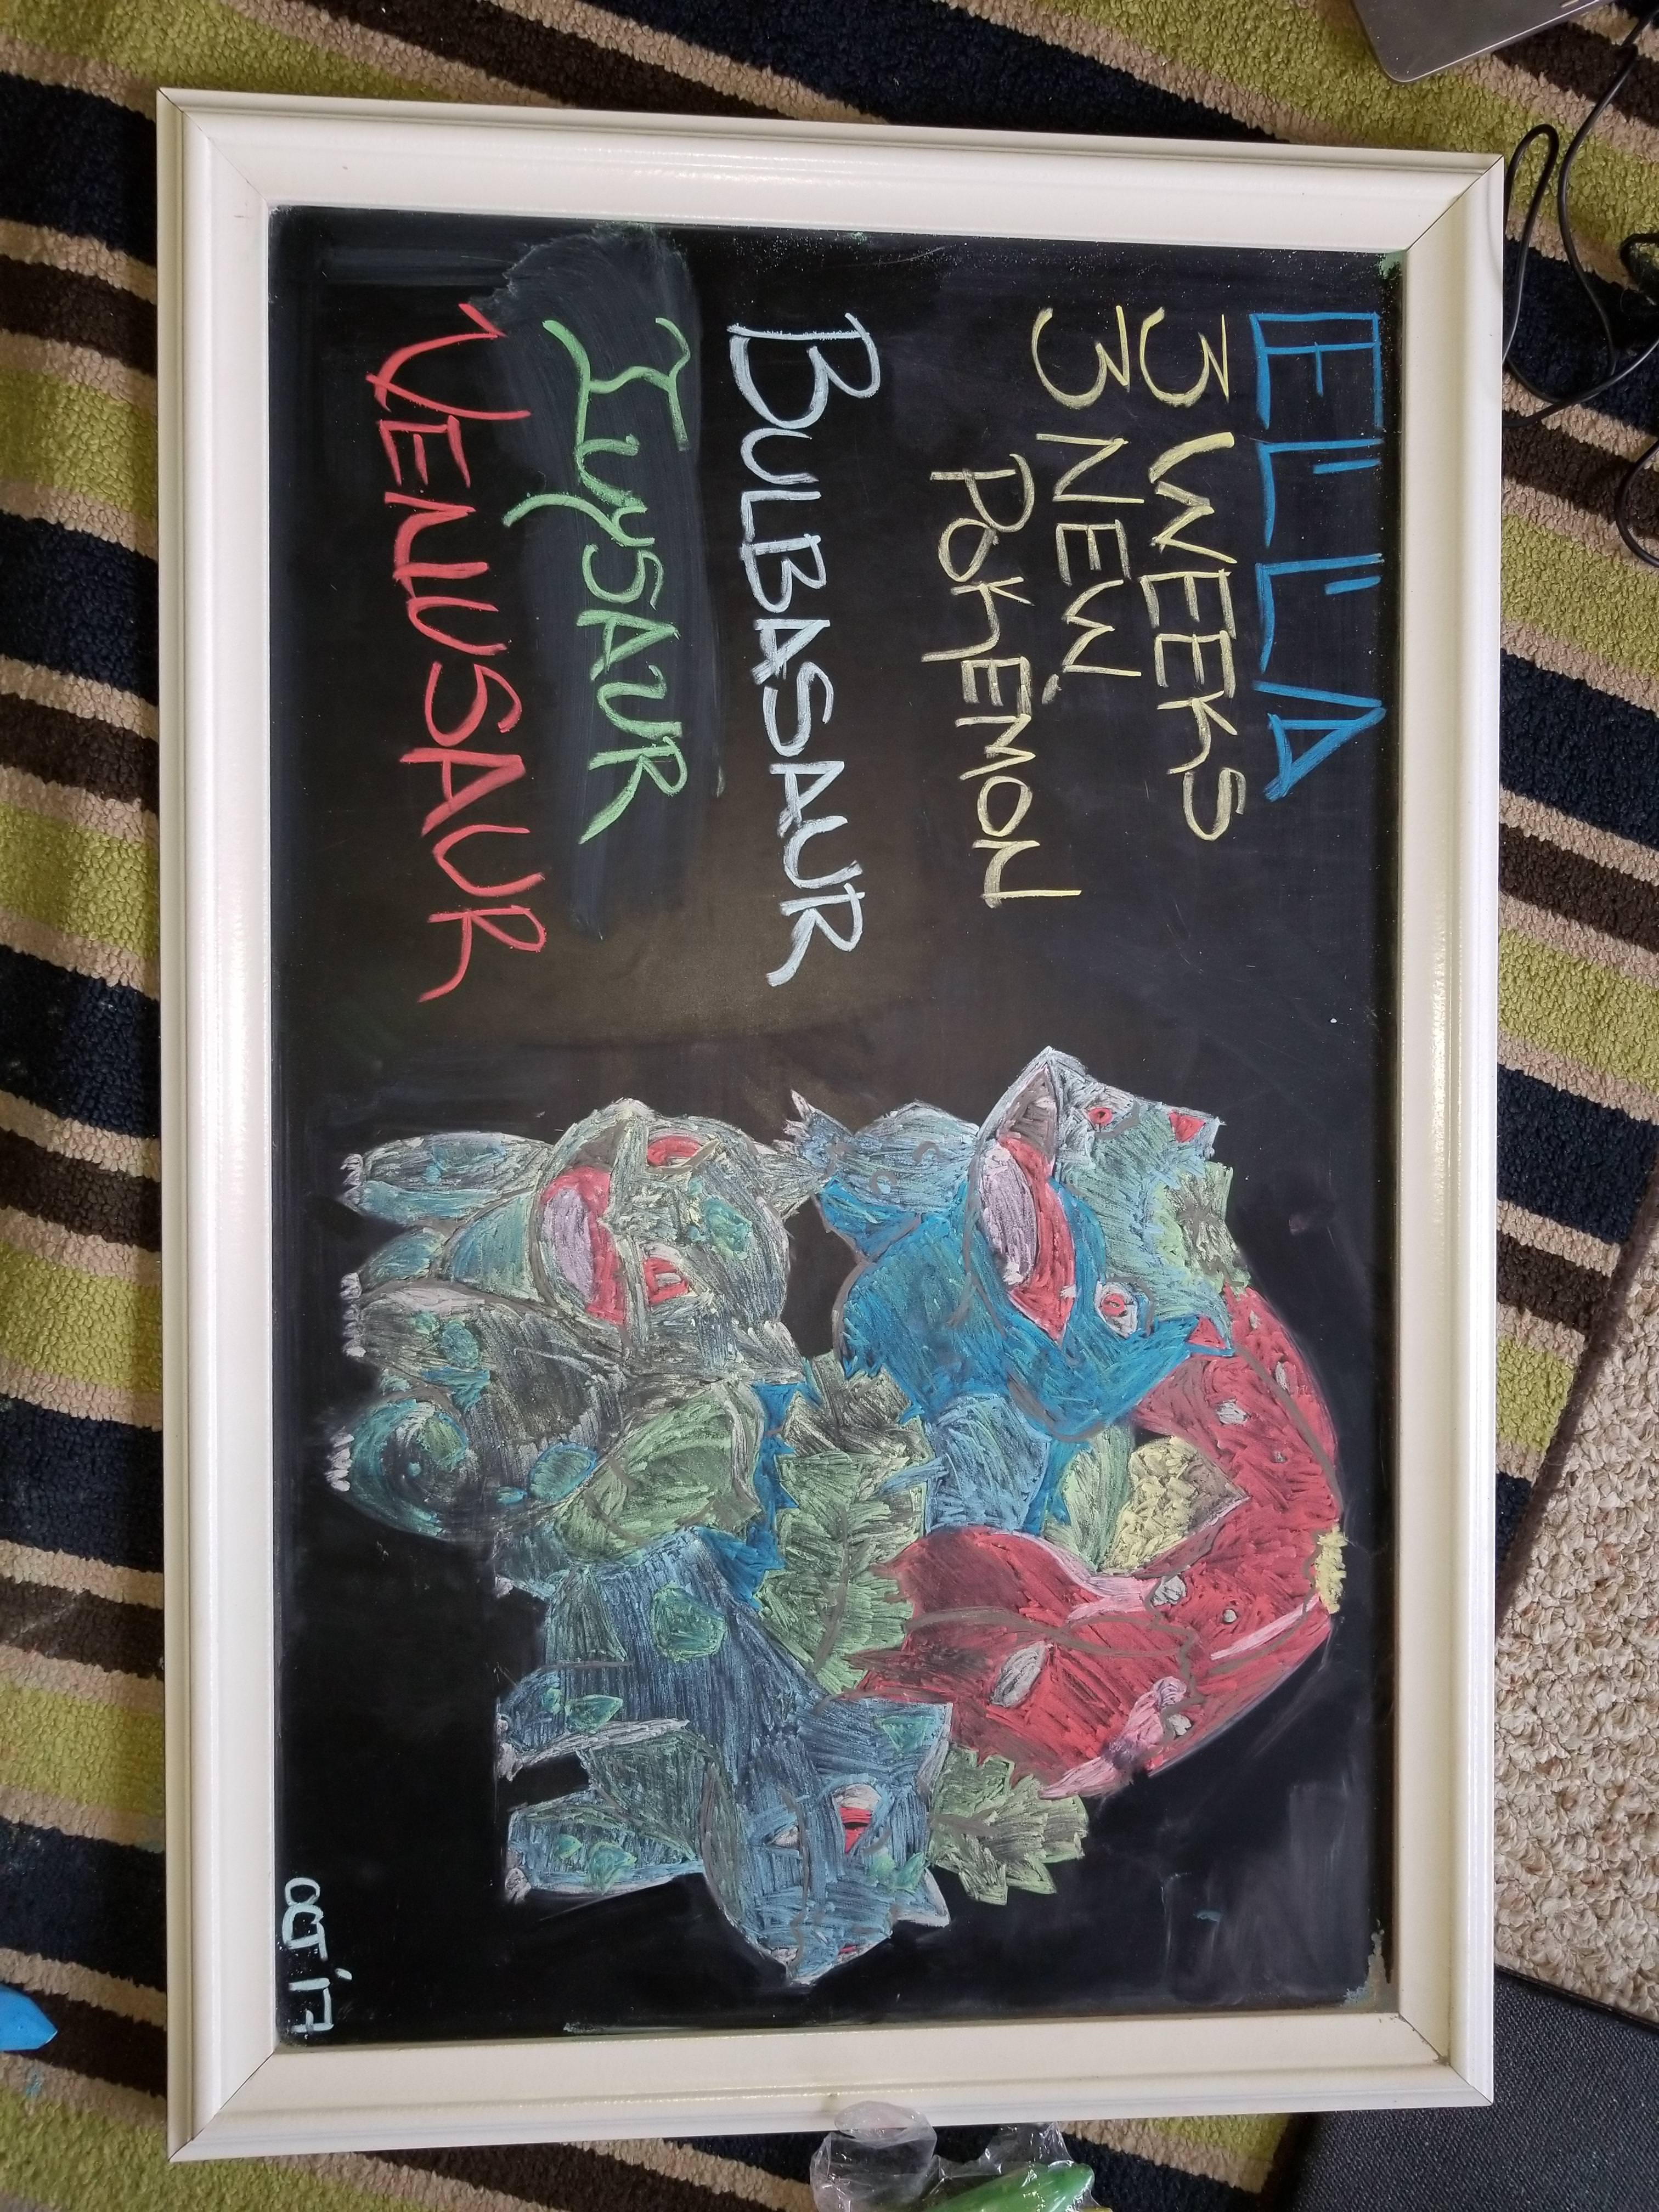 ELLA
3 WEEKS
3 NEW
POKEMON
BULBASAUR
IVYSAUR
VENUSAUR
OCT '17